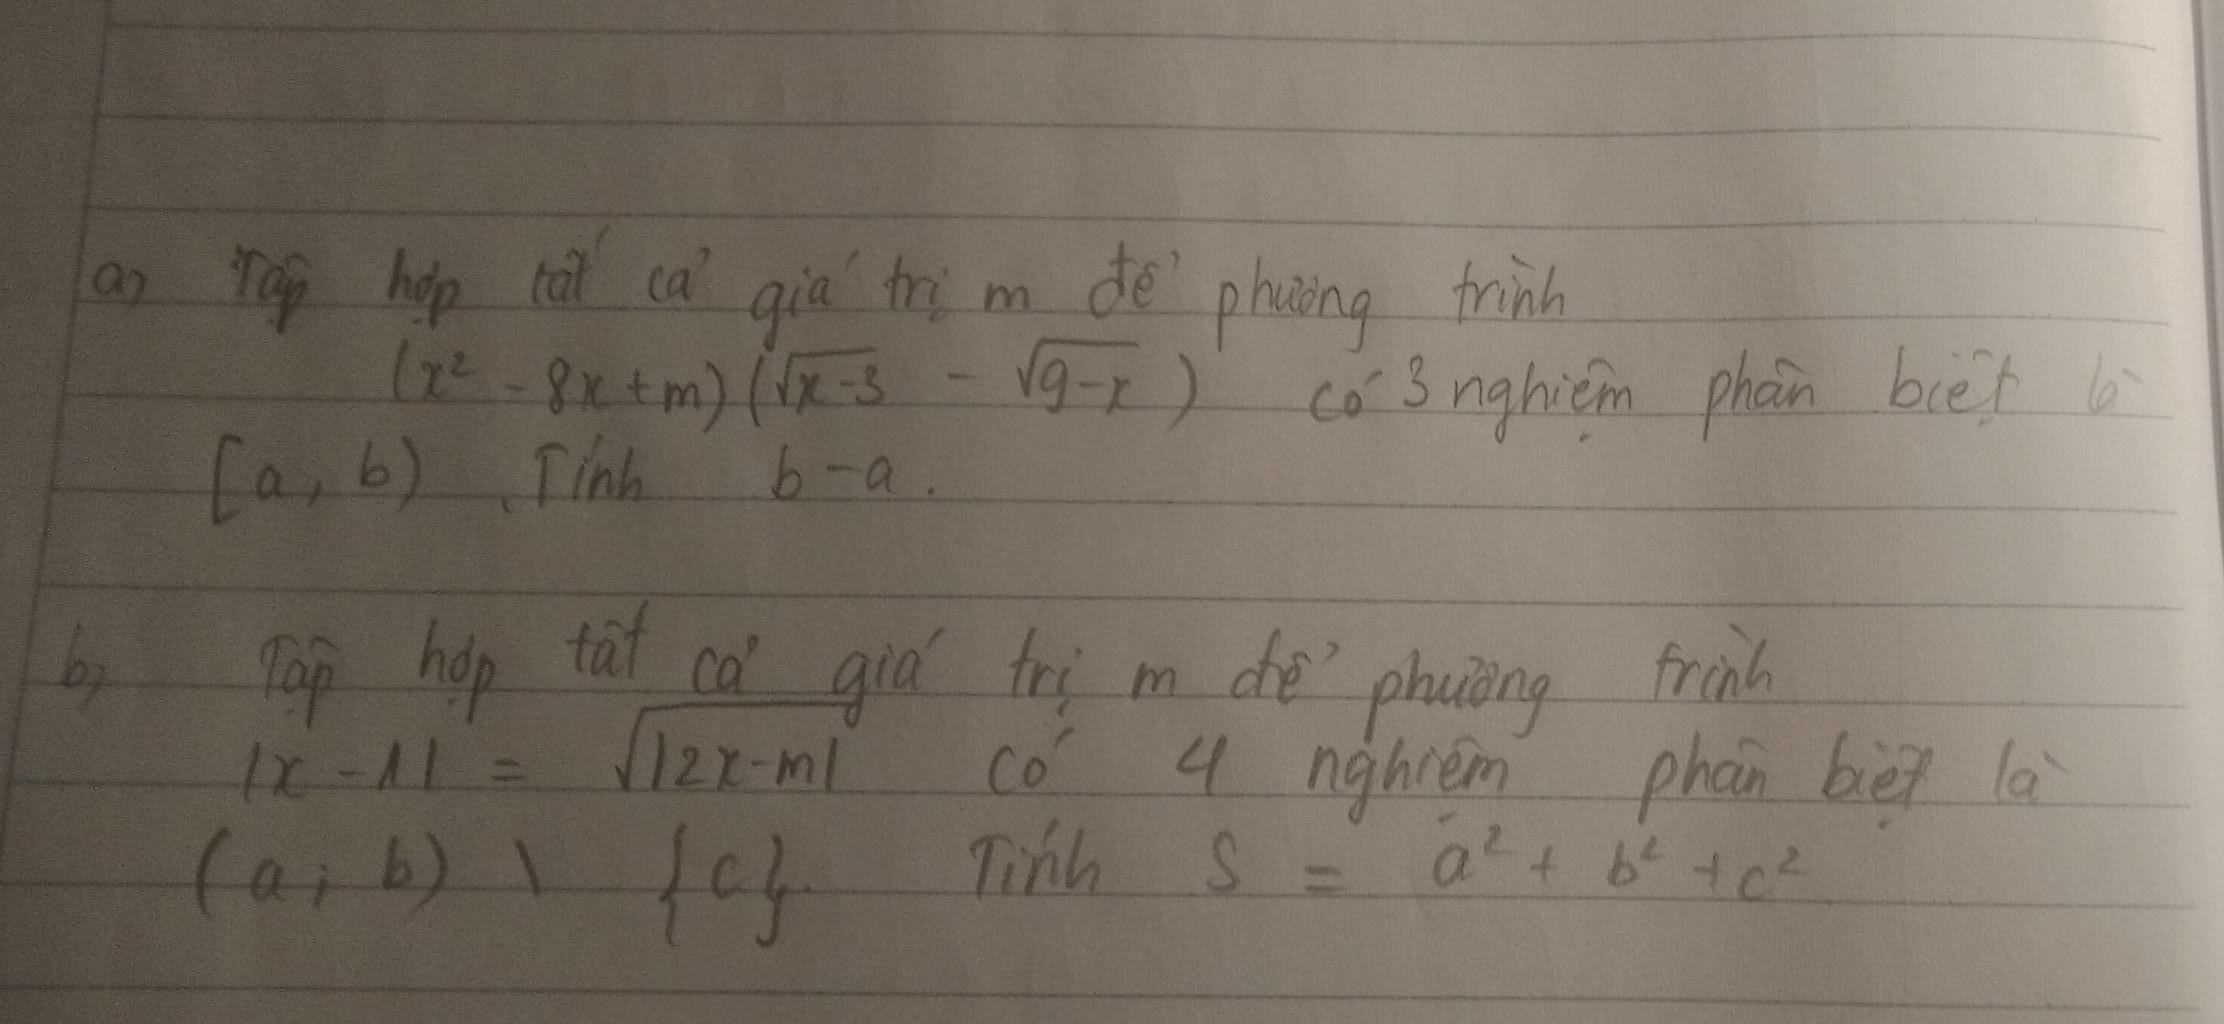 a, Tập hợp tất cả giá trị m để phương trình
(x² - 8x + m)(√x-3 - √9-x) có 3 nghiệm phân biệt là
[a, b). Tính b-a.
b, Tập hợp tất cả giá trị m để phương trình
|x - 1| = √|2x-m| có 4 nghiệm phân biệt là
(a; b) \ {c}. Tính S = a² + b² + c²